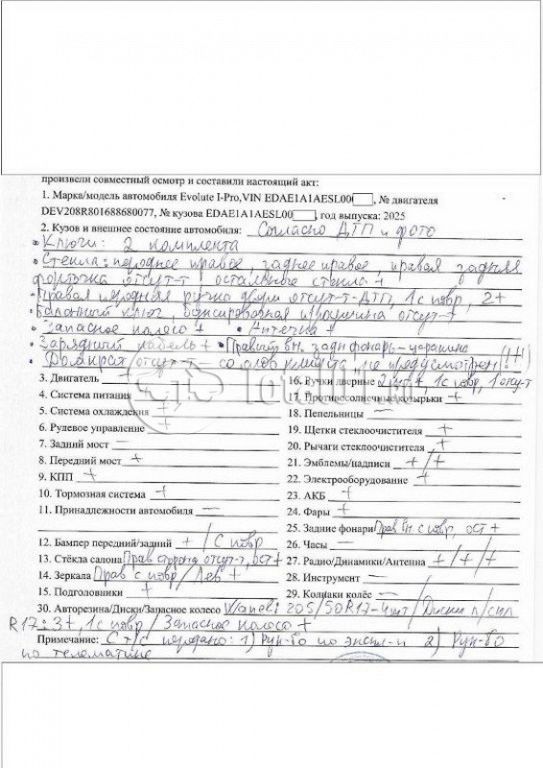 произвели совместный осмотр и составили настоящий акт:
1. Марка/модель автомобиля Evolute I-Pro,VIN EDAE1A1AESL00, № двигателя
DEV208R801688680077, № кузова EDAE1A1AESL00, год выпуска: 2025
2. Кузов и внешнее состояние автомобиля: Согласно ДТП и фото
• Ключи: 2 комплекта
• Стекла: переднее правое, заднее правое, правая задняя
форточка отсут-т, остальные стекла +
• Правая передняя ручка двери отсут-т-ДТП, 1 с повр, 2+
• Балонный ключ, буксировочная проушина отсут-т
• Запасное колесо + • Антенна +
• Зарядный кабель + • Правый вн. задн фонарь-царапина
• Домкрат отсут-т – со слов клиента не предусмотрен!
3. Двигатель
4. Система питания
5. Система охлаждения +
6. Рулевое управление +
7. Задний мост —
8. Передний мост +
9. КПП +
10. Тормозная система +
11. Принадлежности автомобиля —
12. Бампер передний/задний + / с повр
13. Стёкла салона Прав сторона отсут-т, ост +
14. Зеркала Прав с повр / Лев +
15. Подголовники +
16. Ручки дверные 2 шт +, 1с повр, 1 отсут-т
17. Противосолнечные козырьки +
18. Пепельницы —
19. Щетки стеклоочистителя +
20. Рычаги стеклоочистителя +
21. Эмблемы/надписи + / +
22. Электрооборудование +
23. АКБ +
24. Фары +
25. Задние фонари Прав вн. с повр, ост +
26. Часы —
27. Радио/Динамики/Антенна + / + / +
28. Инструмент —
29. Колпаки колёс —
30. Авторезина/Диски/Запасное колесо 205/50R17-4шт / Диски л/спл
R17: 3+, 1с повр / Запасное колесо +
Примечание: С т/с передано: 1) Рук-во по экспл-и 2) Рук-во
по телематике